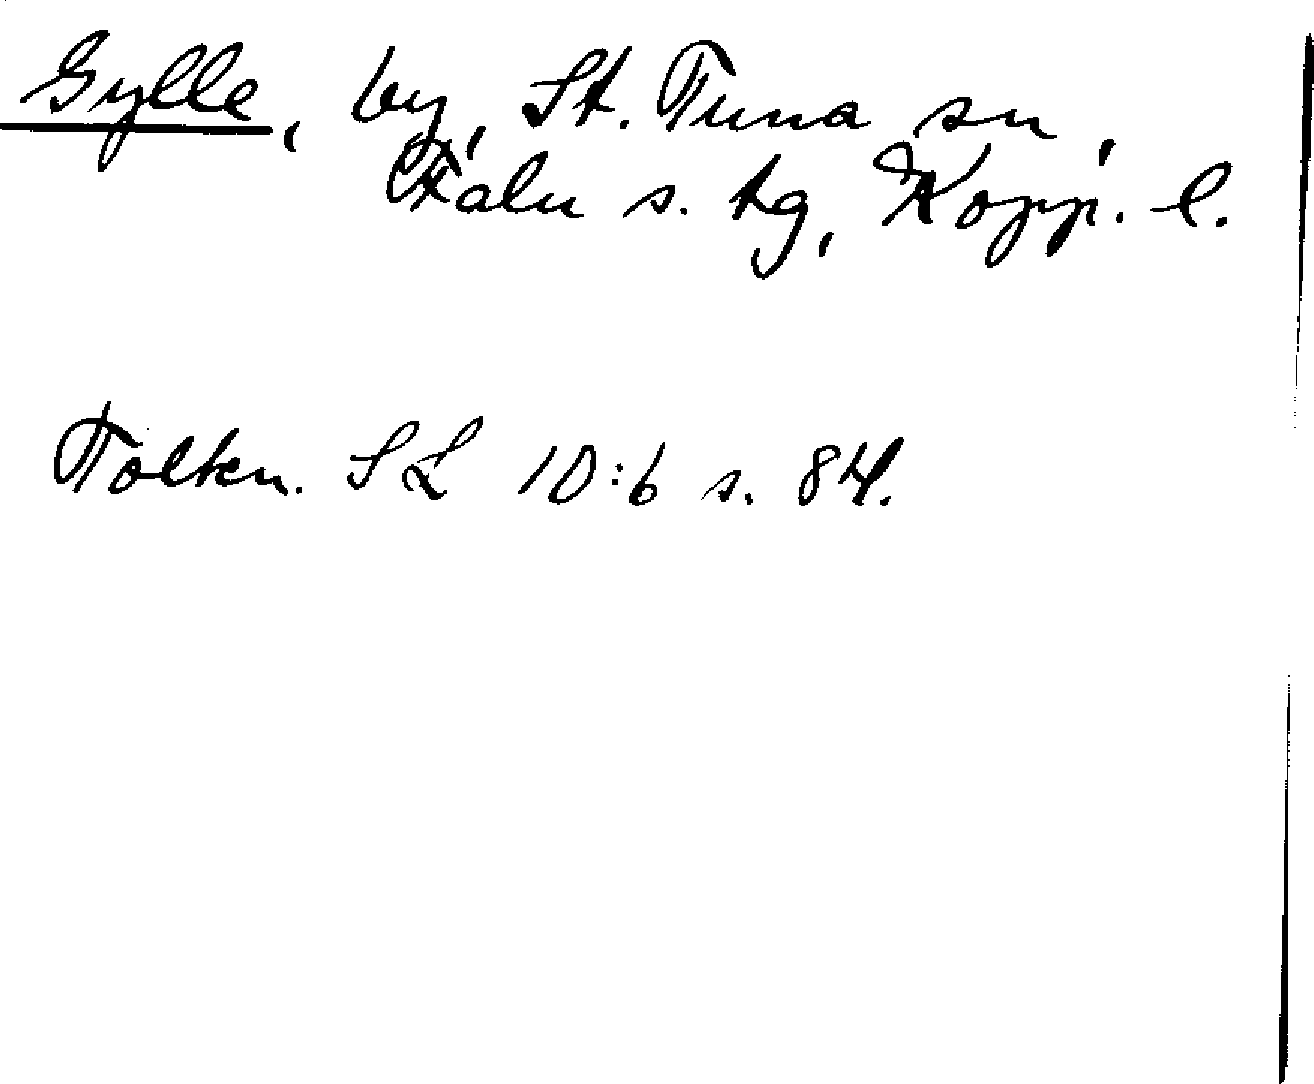 Gylle, by, St. Tuna sn,
Falu s. tg, Kopp. l.
Tolkn. SL 10:6 s. 84.